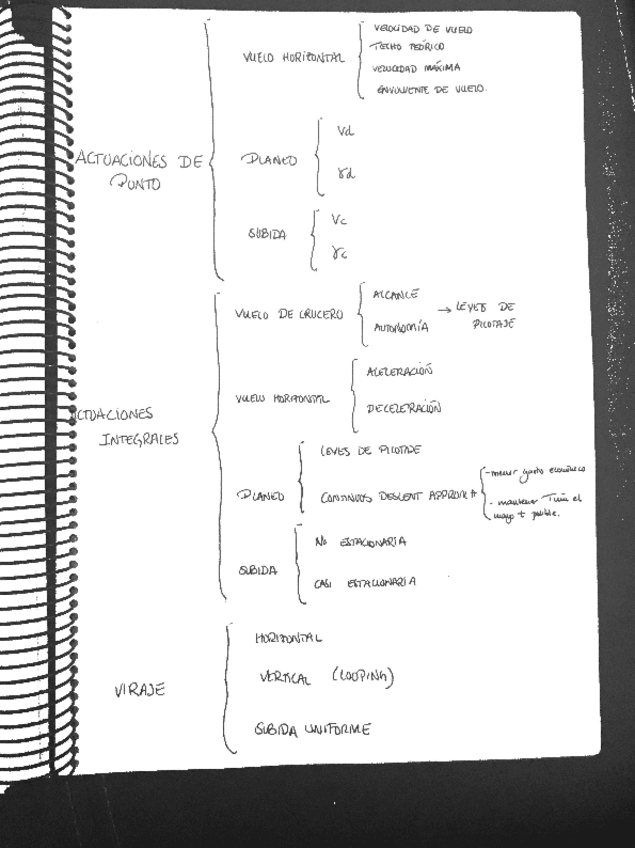 VELOCIDAD DE VUELO
VUELO HORIZONTAL
TECHO TEÓRICO
VELOCIDAD MÁXIMA
ENVOLVENTE DE VUELO.
Vd
ACTUACIONES DE
PUNTO
PLANEO
γd
SUBIDA
Vc
γc
VUELO DE CRUCERO
ALCANCE
AUTONOMÍA → LEYES DE
PILOTAJE
ACELERACIÓN
VUELO HORIZONTAL
DECELERACIÓN
ACTUACIONES
INTEGRALES
LEYES DE PILOTAJE
PLANEO
CONTINUOS DESCENT APPROACH
- menor gasto económico
- mantener Tmin el
mayor t posible.
NO ESTACIONARIA
SUBIDA
CASI ESTACIONARIA
HORIZONTAL
VIRAJE
VERTICAL (LOOPING)
SUBIDA UNIFORME